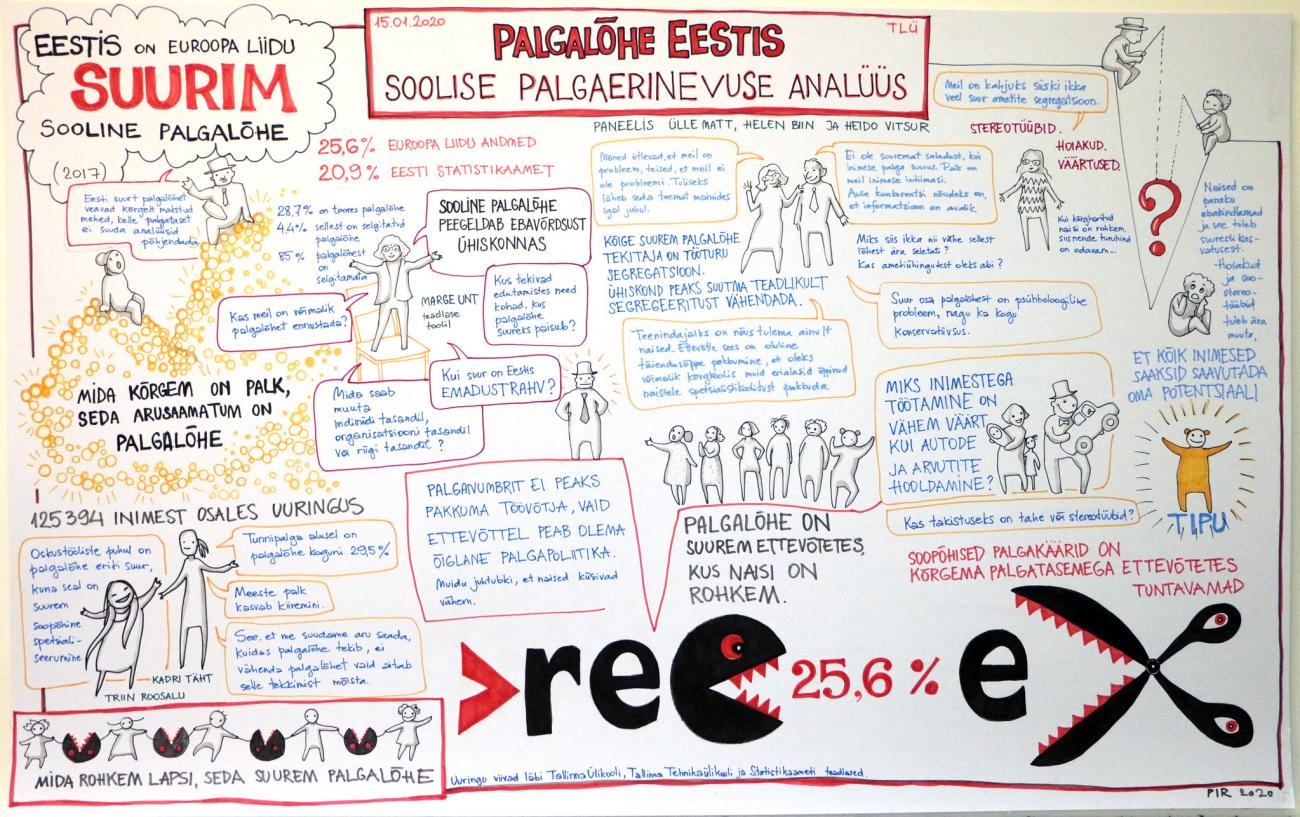 15.01.2020
TLÜ
PALGALÕHE EESTIS
SOOLISE PALGAERINEVUSE ANALÜÜS
EESTIS ON EUROOPA LIIDU
SUURIM
SOOLINE PALGALÕHE
(2017)
25,6% EUROOPA LIIDU ANDMED
20,9% EESTI STATISTIKAAMET
Eesti suurt palgalõhet
veavad kõrgelt makstud
mehed, kelle palgataset
ei suuda analüüsid
põhjendada.
28,7% on toores palgalõhe
4,4% sellest on selgitatud
palgalõhe
85% palgalõhest
on
selgitamata
SOOLINE PALGALÕHE
PEEGELDAB EBAVÕRDSUST
ÜHISKONNAS
Kas meil on võimalik
palgalõhet ennustada?
MARGE UNT
teadlase
toolil
Kus tekivad
edutamistes need
kohad, kus
palgalõhe
suureks paisub?
Mida saab
muuta
indiviidi tasandil,
organisatsiooni tasandil
või riigi tasandil?
Kui suur on Eestis
EMADUSTRAHV?
MIDA KÕRGEM ON PALK,
SEDA ARUSAAMATUM ON
PALGALÕHE
125394 INIMEST OSALES UURINGUS
Oskustööliste puhul on
palgalõhe eriti suur,
kuna seal on
suurem
soopõhine
spetsiali-
seerumine.
Tunnipalga alusel on
palgalõhe koguni 29,5%
Meeste palk
kasvab kiiremini.
See, et me suudame aru saada,
kuidas palgalõhe tekib, ei
vähenda palgalõhet vaid aitab
selle tekkimist mõista.
KADRI TÄHT
TRIIN ROOSALU
MIDA ROHKEM LAPSI, SEDA SUUREM PALGALÕHE
PALGANUMBRIT EI PEAKS
PAKKUMA TÖÖVÕTJA, VAID
ETTEVÕTTEL PEAB OLEMA
ÕIGLANE PALGAPOLIITIKA.
Muidu juhtubki, et naised küsivad
vähem.
PANEELIS ÜLLE MATT, HELEN BIIN JA HEIDO VITSUR
Mõned ütlevad, et meil on
probleem, teised, et meil ei
ole probleemi. Tuliseks
läheb seda teemat mainides
igal juhul.
Ei ole suuremat saladust, kui
inimese palga suurus. Palk on
meil inimese intiimasi.
Ausa konkurentsi nõudeks on,
et informatsioon on avalik.
Meil on kahjuks siiski ikka
veel suur ametite segregatsioon.
STEREOTÜÜBID.
HOIAKUD.
VÄÄRTUSED.
Kui kõrgharitud
naisi on rohkem,
siis nende tunnihind
on odavam...
KÕIGE SUUREM PALGALÕHE
TEKITAJA ON TÖÖTURU
SEGREGATSIOON.
ÜHISKOND PEAKS SUUTMA TEADLIKULT
SEGREGEERITUST VÄHENDADA.
Miks siis ikka nii vähe sellest
lõhest ära seletati?
Kas ametiühingutest oleks abi?
Suur osa palgalõhest on psühholoogiline
probleem, nagu ka kogu
konservatiivsus.
Teenindajaks on nõus tulema ainult
naised. Ettevõtte sees on oluline
täiendusõppe pakkumine, et oleks
võimalik kõrgkoolis muid erialasid õppinud
naistele spetsialistikoolitust pakkuda.
MIKS INIMESTEGA
TÖÖTAMINE ON
VÄHEM VÄÄRT
KUI AUTODE
JA ARVUTITE
HOOLDAMINE?
Kas takistuseks on tahe või stereotüübid?
?
Naised on
paraku
ebakindlamad
ja see tuleb
suuresti kas-
vatusest.
-Hoiakud
ja soo-
stereo-
tüübid
tuleb ära
muuta,
ET KÕIK INIMESED
SAAKSID SAAVUTADA
OMA POTENTSIAALI
TIPU
PALGALÕHE ON
SUUREM ETTEVÕTETES,
KUS NAISI ON
ROHKEM.
SOOPÕHISED PALGAKÄÄRID ON
KÕRGEMA PALGATASEMEGA ETTEVÕTETES
TUNTAVAMAD
>reC 25,6% eX
Uuringu viivad läbi Tallinna Ülikooli, Tallinna Tehnikaülikooli ja Statistikaameti teadlased.
PIR 2020